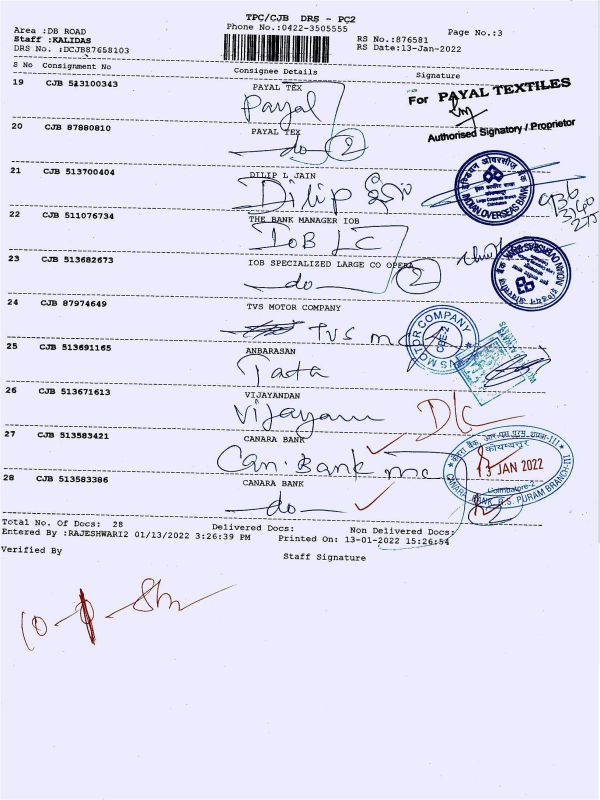 TPC/CJB DRS - PC2
Phone No.:0422-3505555
Page No.:3
Area :DB ROAD
Staff :KALIDAS
DRS No. :DCJB87658103
RS No.:876581
RS Date:13-Jan-2022
S No Consignment No Consignee Details Signature
19 CJB 513100343 PAYAL TEX
Payal
For PAYAL TEXTILES
Authorised Signatory / Proprietor
20 CJB 87880810 PAYAL TEX
do 2
21 CJB 513700404 DILIP L JAIN
Dilip
INDIAN OVERSEAS BANK
22 CJB 511076734 THE BANK MANAGER IOB
IOB LC
23 CJB 513682673 IOB SPECIALIZED LARGE CO OPERA
do 2
INDIAN OVERSEAS BANK
24 CJB 87974649 TVS MOTOR COMPANY
TVS mc
TVS MOTOR COMPANY
CBE-2
25 CJB 513691165 ANBARASAN
Tata
26 CJB 513671613 VIJAYANDAN
Vijayan
D/C
27 CJB 513583421 CANARA BANK
Can. Bank mc
13 JAN 2022
Coimbatore-2
CANARA BANK R.S. PURAM BRANCH-III
28 CJB 513583386 CANARA BANK
do
Total No. Of Docs: 28 Delivered Docs: Non Delivered Docs:
Entered By :RAJESHWARI2 01/13/2022 3:26:39 PM Printed On: 13-01-2022 15:26:54
Verified By Staff Signature
10